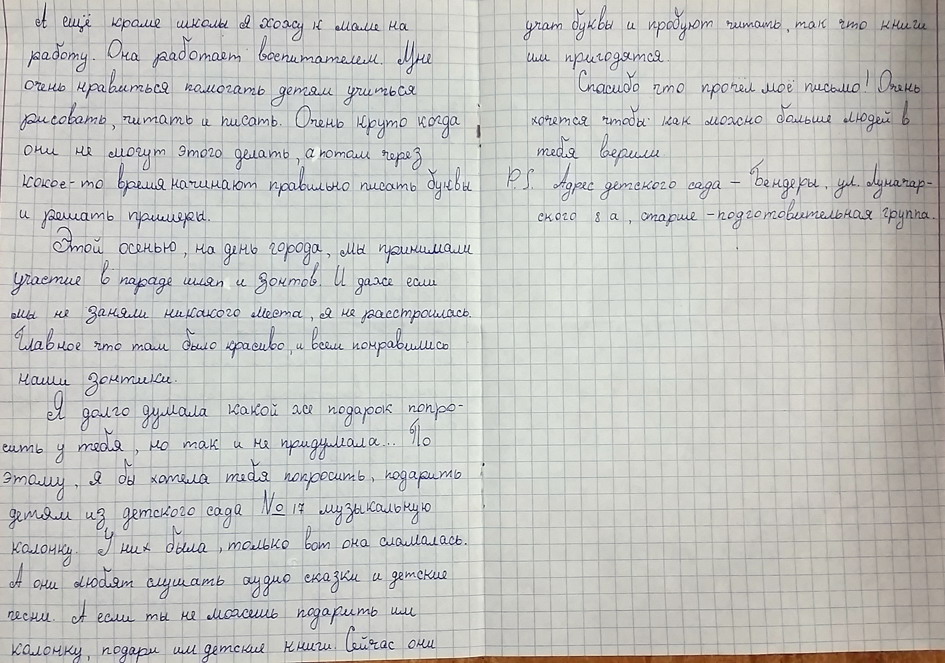 А ещё кроме школы я хожу к маме на
работу. Она работает воспитателем. Мне
очень нравиться помогать детям учиться
рисовать, читать и писать. Очень круто когда
они не могут этого делать, а потом через
кокое-то время начинают правильно писать буквы
и решать примеры.
Этой осенью, на день города, мы принимали
участие в параде шляп и зонтов. И даже если
мы не заняли никакого места, я не расстроилась.
Главное что там было красиво, и всем понравились
наши зонтики.
Я долго думала какой же подарок попро-
сить у тебя, но так и не придумала... По
этому, я бы хотела тебя попросить, подарить
детям из детского сада № 17 музыкальную
колонку. У них была, только вот она сламалась.
А они любят слушать аудио сказки и детские
песни. А если ты не можешь подарить им
колонку, подари им детские книги. Сейчас они
учат буквы и пробуют читать, так что книги
им пригодятся.
Спасибо что прочёл моё письмо! Очень
хочется чтобы как можно больше людей в
тебя верили
P.S. Адрес детского сада – Бендеры, ул. Луначар-
ского 8 а, старше-подготовительная группа.